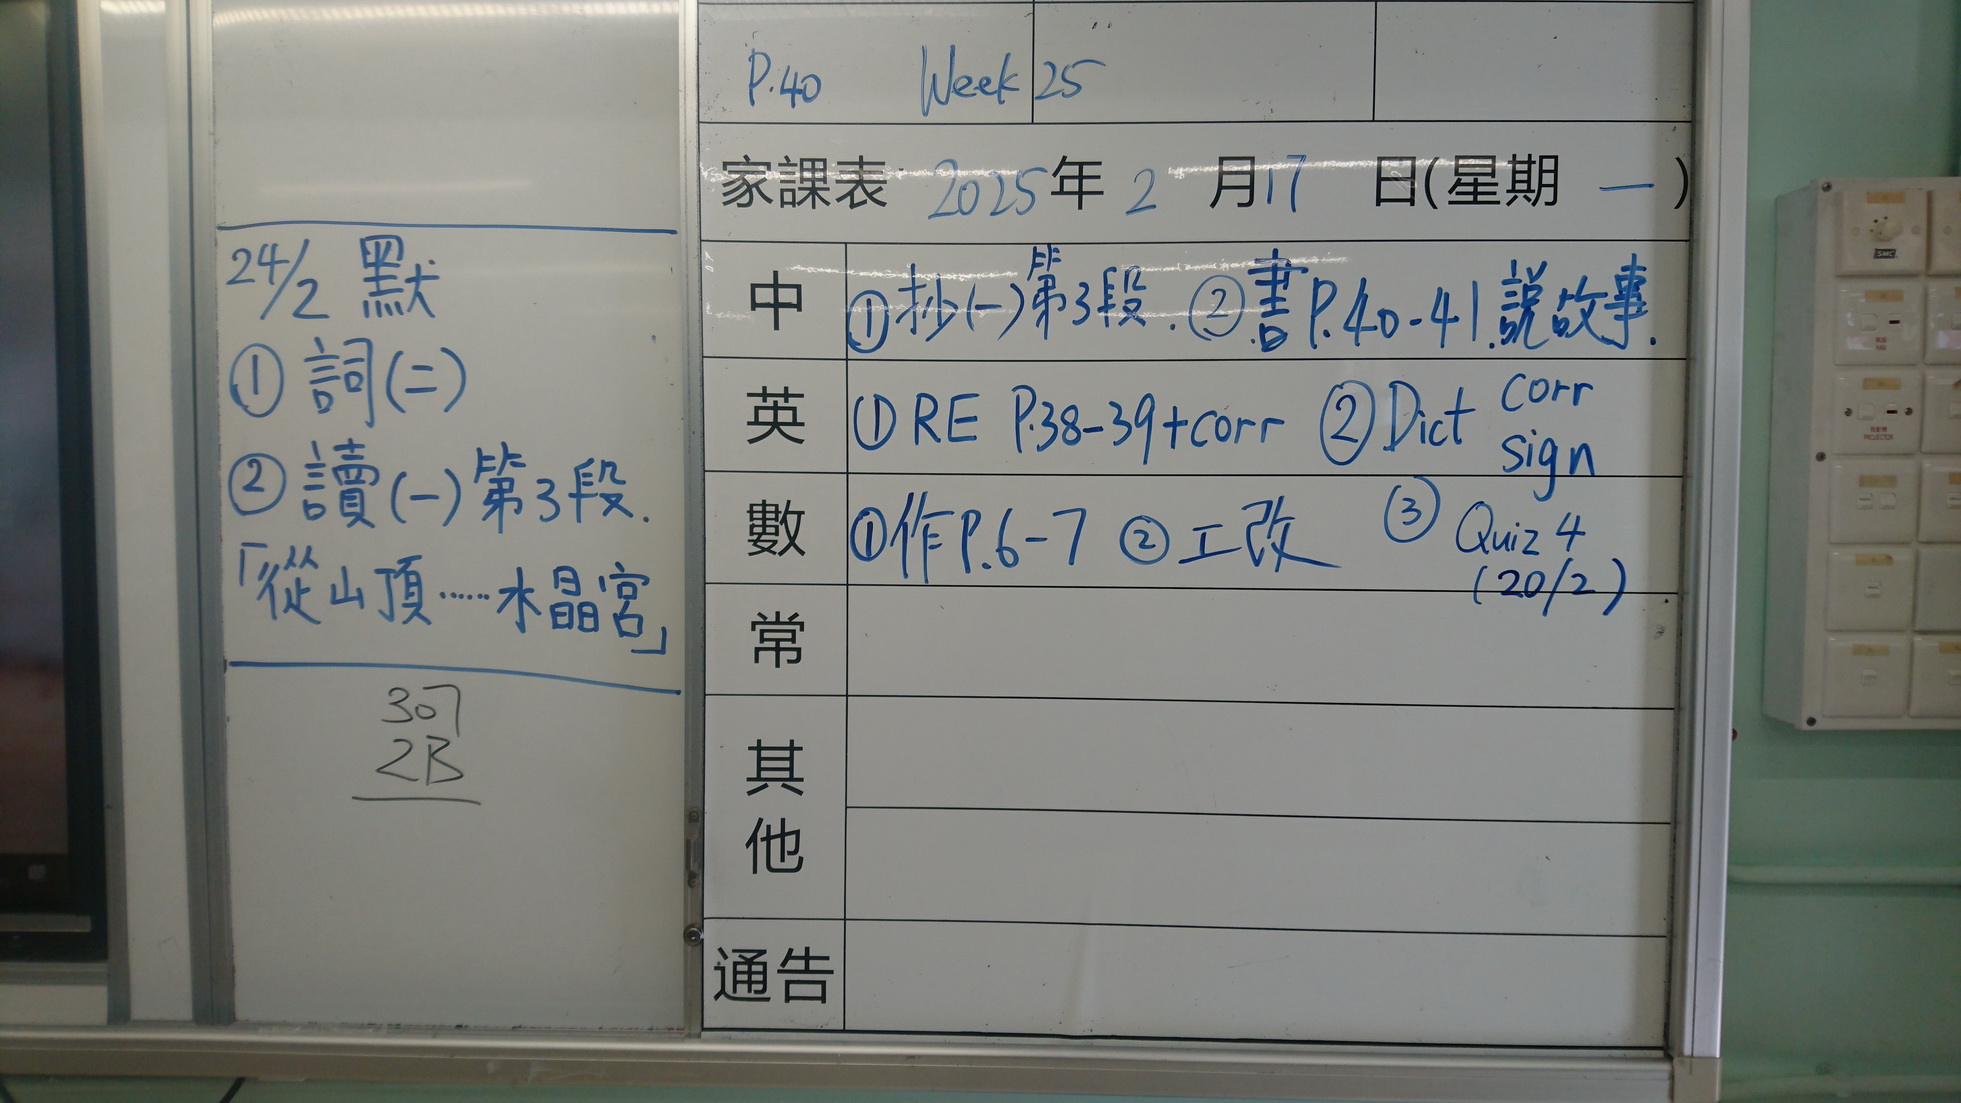 24/2 默
① 詞(二)
② 讀(一)第3段.
「從山頂……水晶宮」
307
2B
P.40 Week 25
家課表: 2025年 2 月 17 日(星期 一 )
中 ①抄(一)第3段. ②書P.40-41.說故事.
英 ①RE P.38-39+corr ②Dict corr sign
數 ①作P.6-7 ②工改 ③ Quiz 4 (20/2)
常
其他
通告